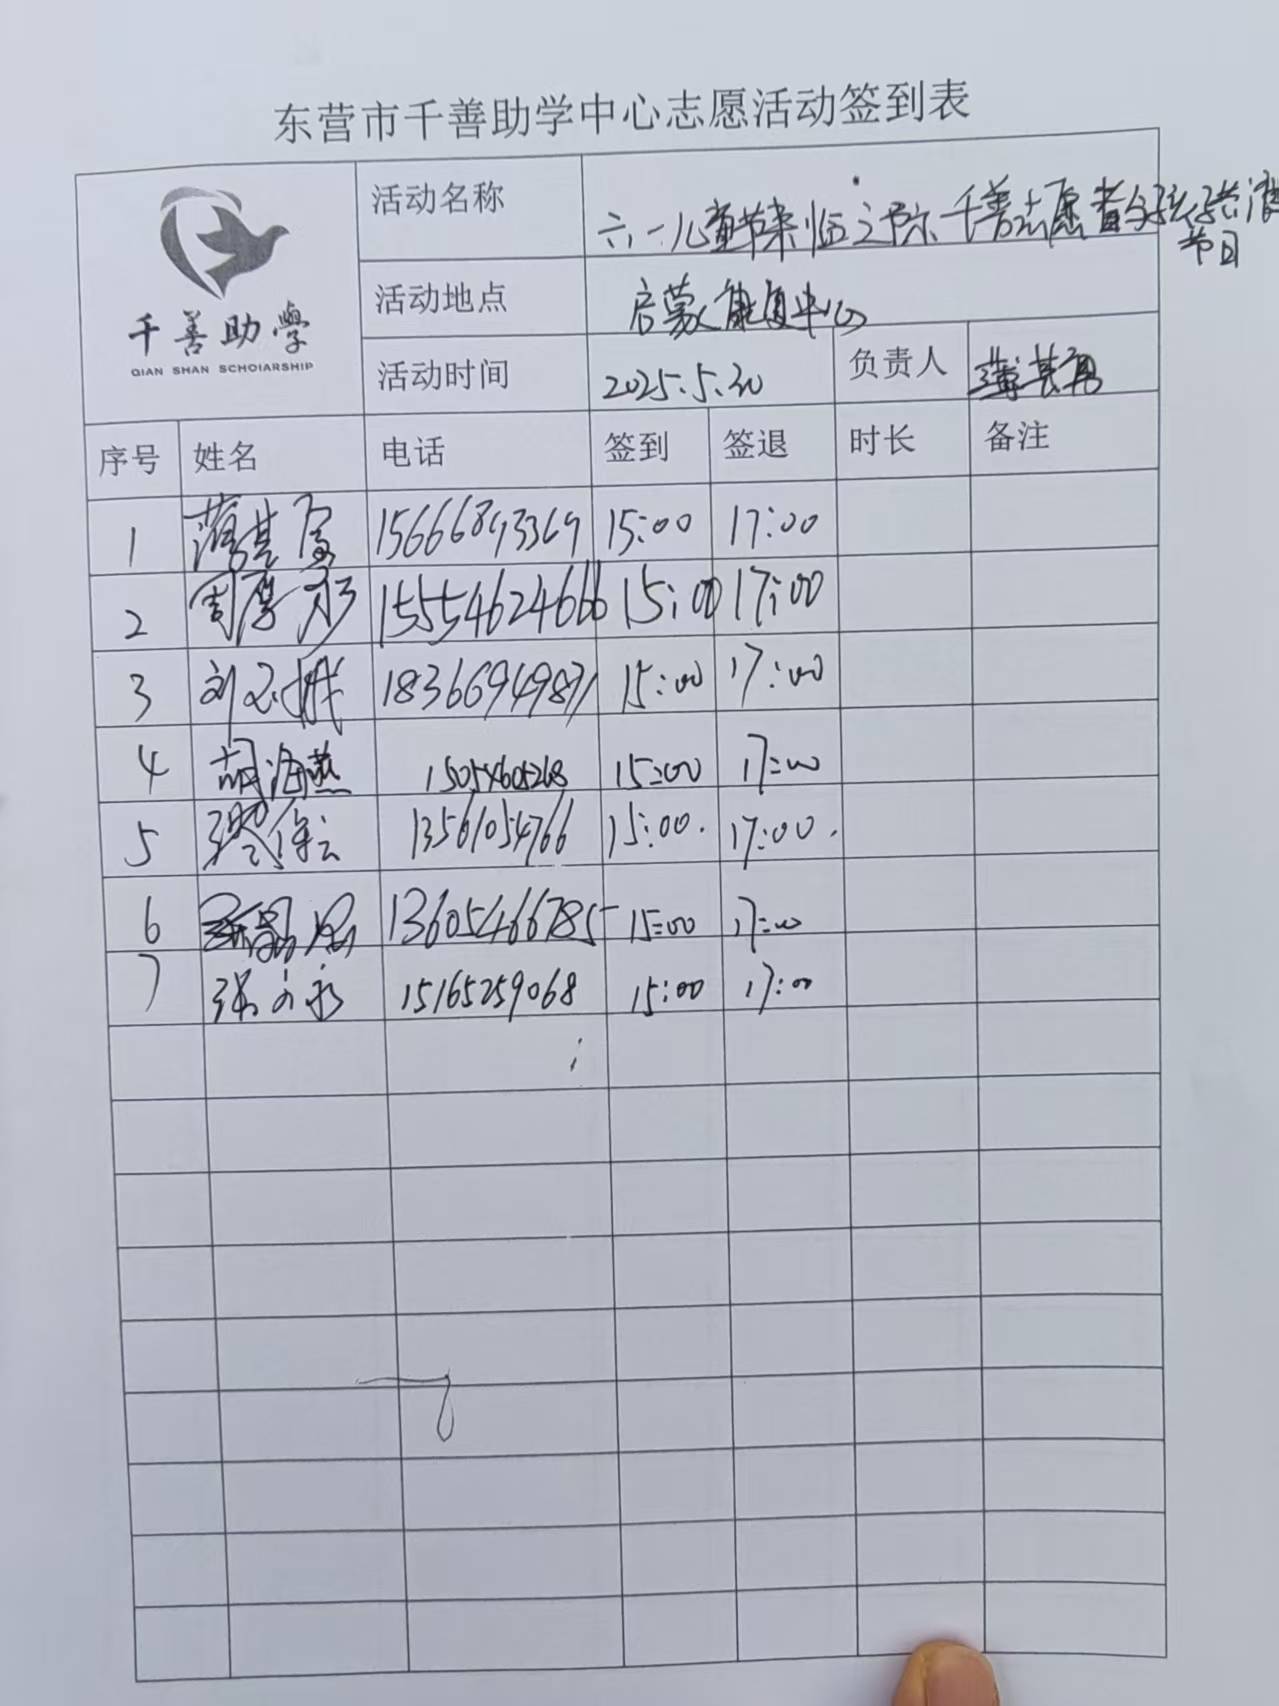 东营市千善助学中心志愿活动签到表
千善助學
QIAN SHAN SCHOLARSHIP
活动名称 六一儿童节来临之际千善志愿者与孩子共度
节日
活动地点 启蒙康复中心
活动时间 2025.5.30 负责人
序号 姓名 电话 签到 签退 时长 备注
1 15666893369 15:00 17:00
2 15554624666 15:00 17:00
3 18366949871 15:00 17:00
4 胡海燕 15054605268 15:00 17:00
5 13561054766 15:00. 17:00.
6 13605466785 15:00 17:00
7 15165259068 15:00 17:00